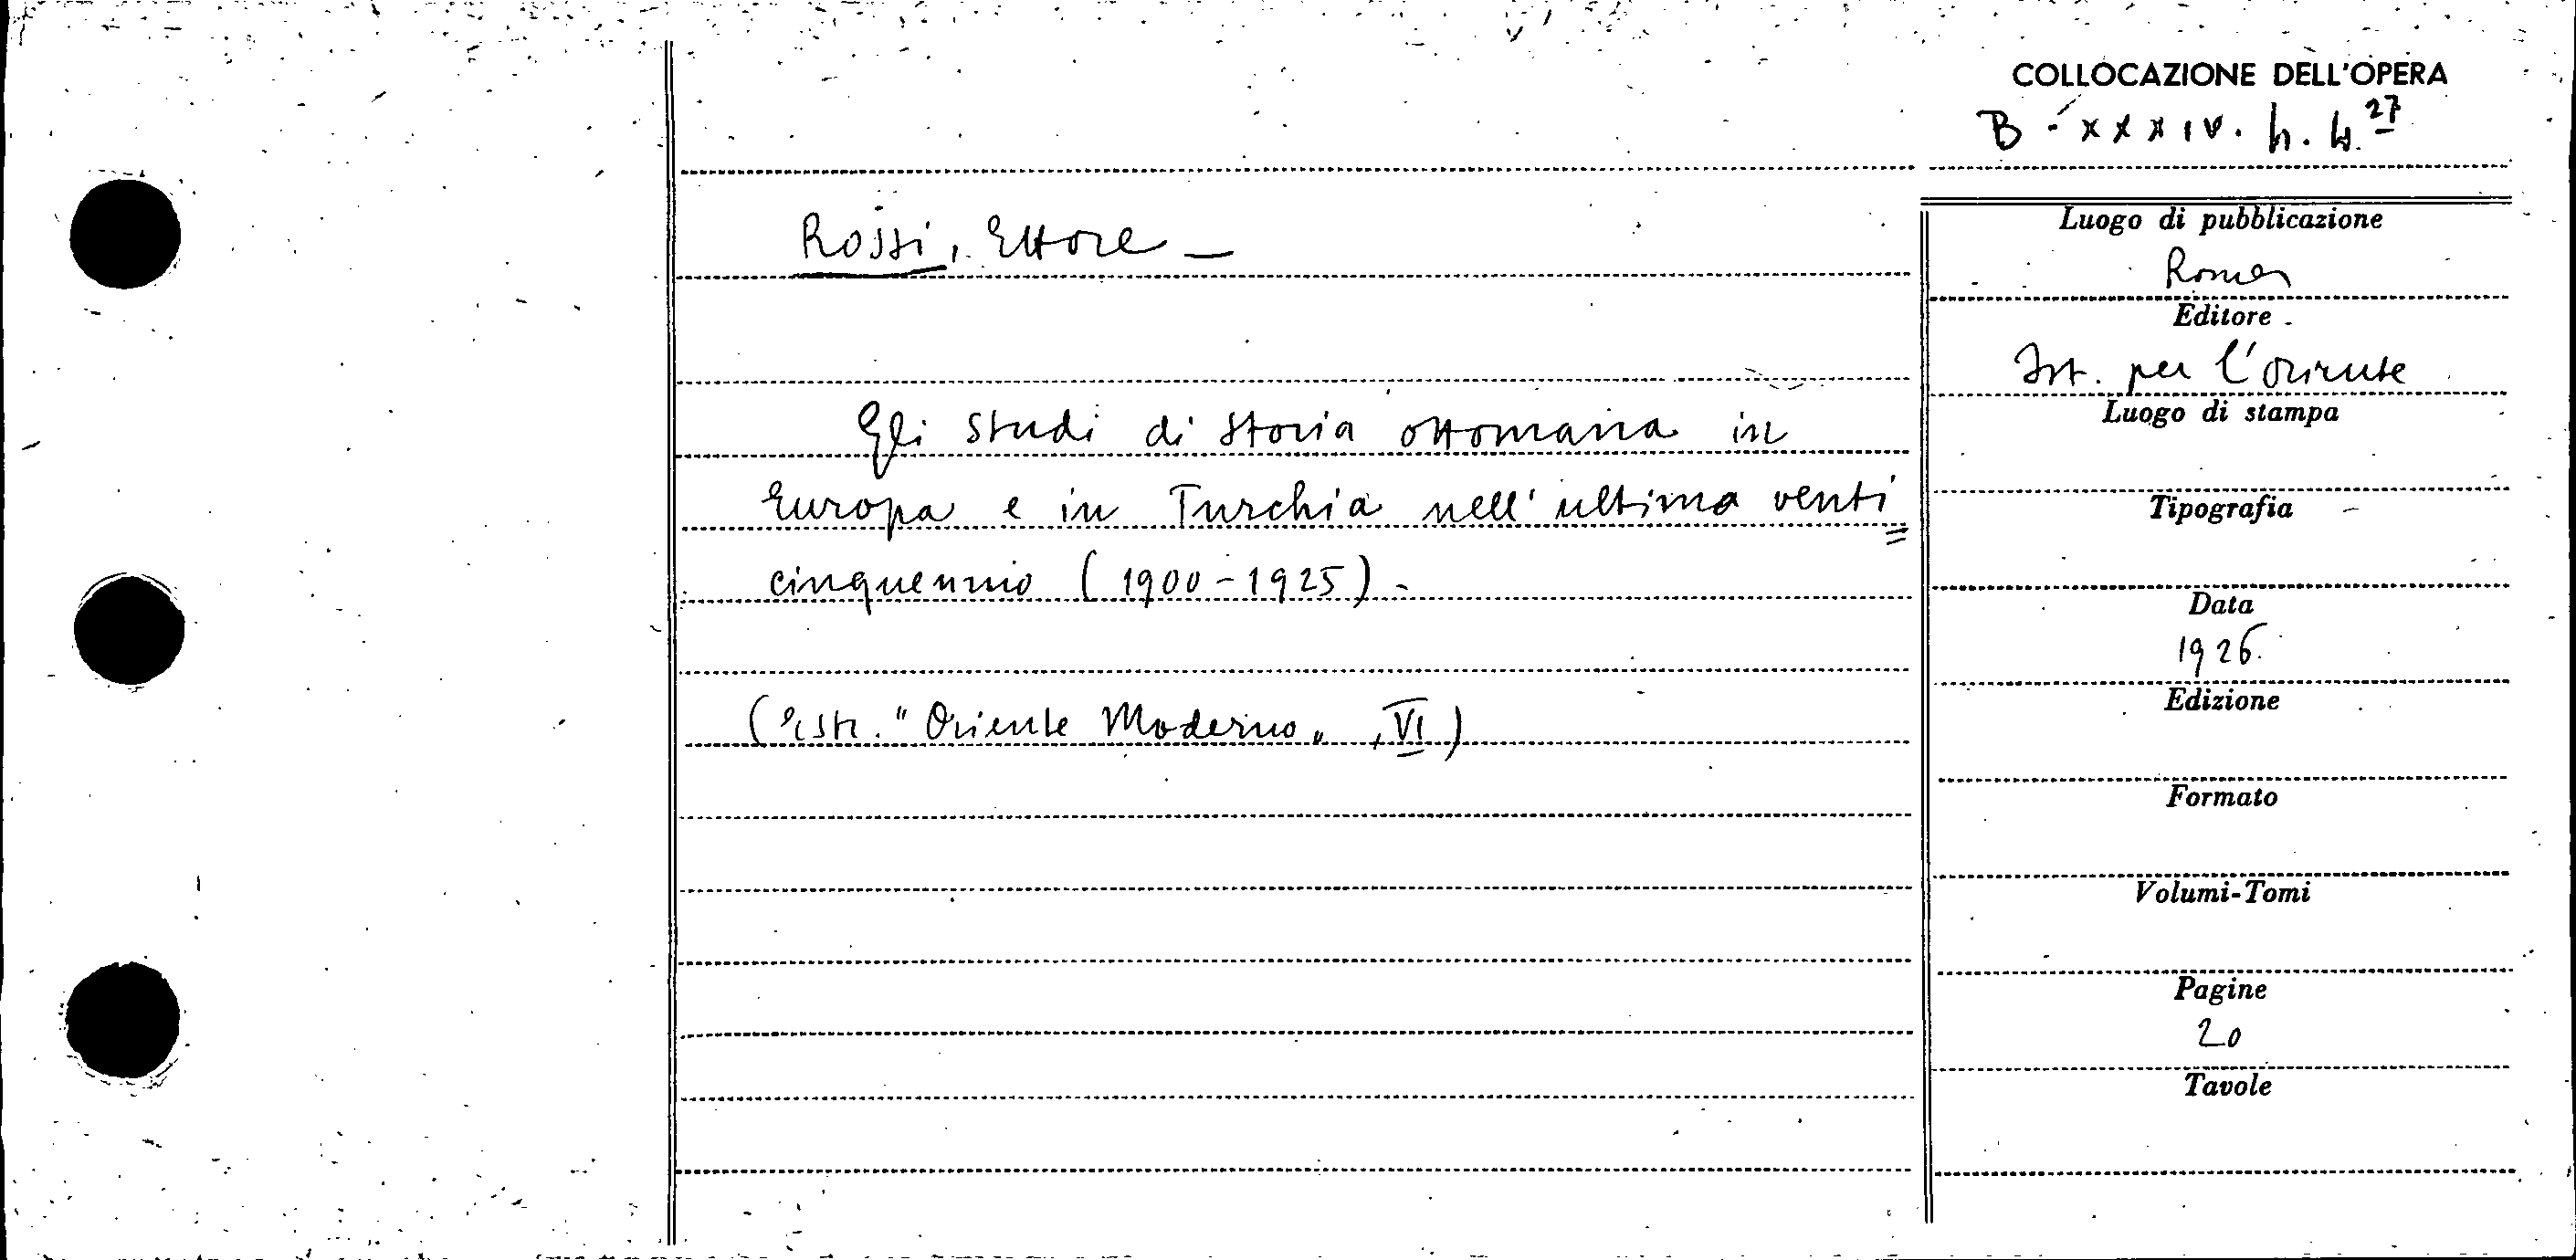 COLLOCAZIONE DELL'OPERA
B - XXXIV. h. 4. 27
Rossi, Ettore -
Gli studi di storia ottomana in
Europa e in Turchia nell'ultimo venti=
cinquennio (1900-1925) -
(estr. "Oriente Moderno", VI)
Luogo di pubblicazione
Roma
Editore
Ist. per l'Oriente
Luogo di stampa
Tipografia
Data
1926.
Edizione
Formato
Volumi-Tomi
Pagine
20
Tavole